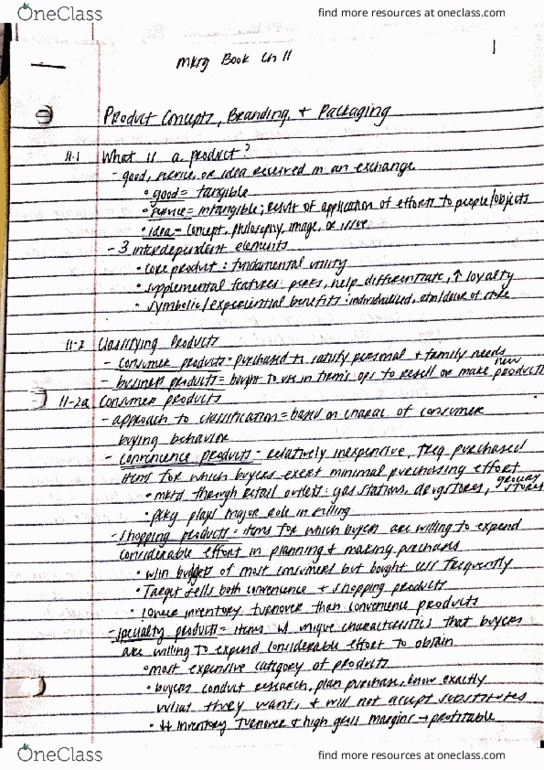 OneClass
find more resources at oneclass.com
1
Mktg Book Ch 11
Product Concepts, Branding, + Packaging
11.1 What is a product?
- good, service, or idea received in an exchange
• good = tangible
• service = intangible; result of application of efforts to people/objects
• idea = concept, philosophy, image, or issue
- 3 interdependent elements
• core product: fundamental utility
• supplemental features: perks, help differentiate, ↑ loyalty
• symbolic/experiential benefits: individualized, atm/decor of store
11-2 Classifying Products
- consumer products = purchased to satisfy personal + family needs
- business products = bought to use in firm's ops to resell or make new products
11-2a Consumer products
- approach to classification = based on charac of consumer
buying behavior
- convenience products - relatively inexpensive, freq purchased
items for which buyers exert minimal purchasing effort
• mktd through retail outlets: gas stations, drugstores, grocery stores
• pckg plays major role in selling
- shopping products: items for which buyers are willing to expend
considerable effort in planning + making purchases
• w/in budgets of most consumers but bought less frequently
• Target sells both convenience + shopping products
• lower inventory turnover than convenience products
- specialty products = items w/ unique characteristics that buyers
are willing to expend considerable effort to obtain
• most expensive category of products
• buyers conduct research, plan purchase, know exactly
what they want, + will not accept substitutes
• ↓↓ inventory turnover + high gross margins → profitable
OneClass
find more resources at oneclass.com